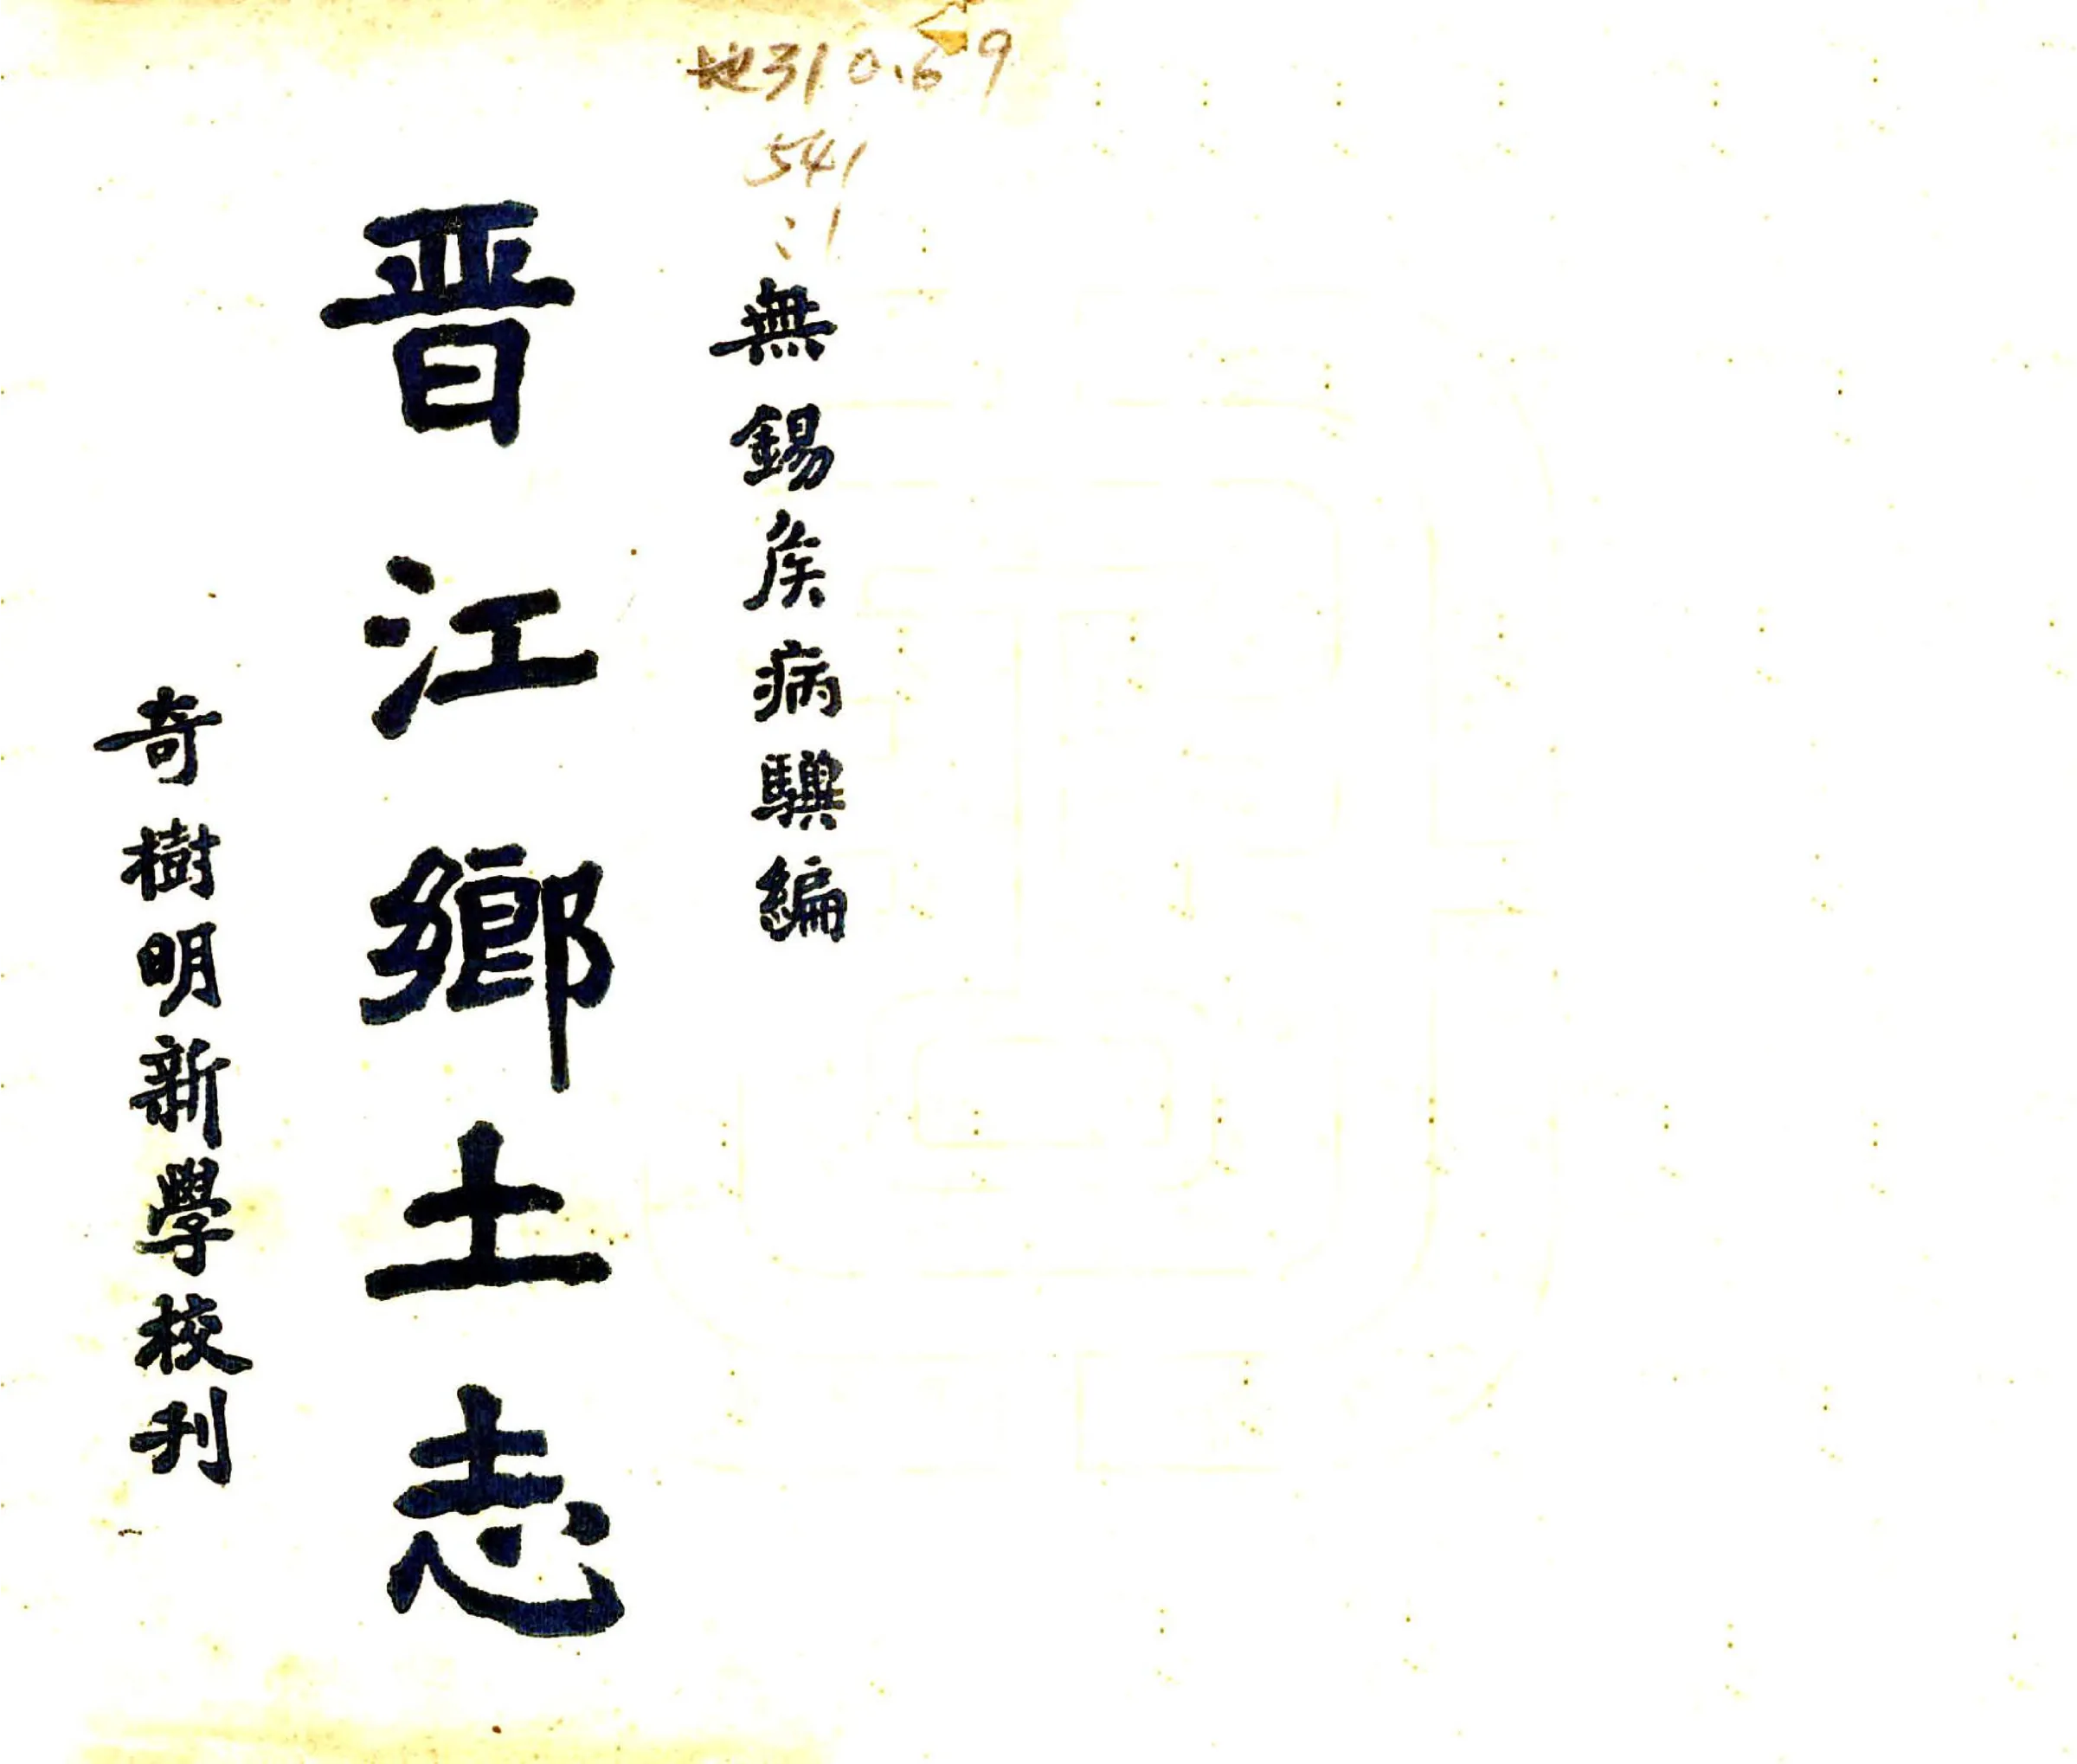 地310.69
541
:1
無錫侯病驥編
晋江鄉土志
奇樹明新學校刋